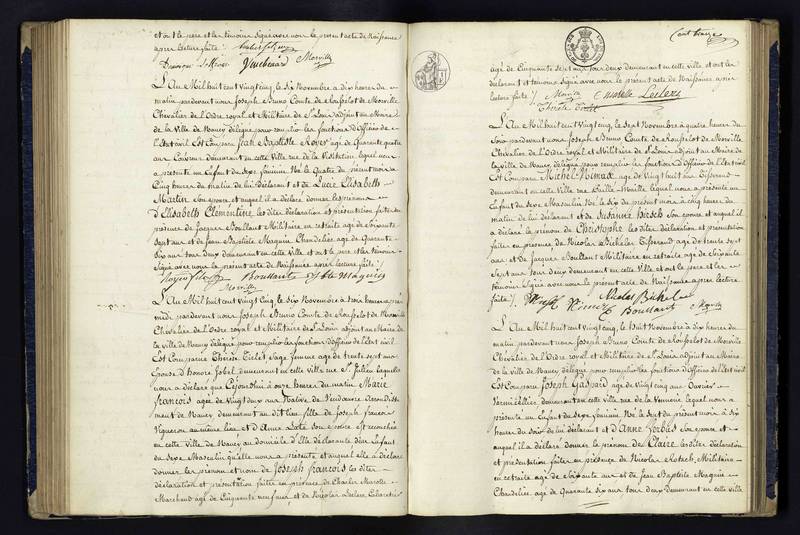 et ont le pere et les témoins signé avec nous le présent acte de Naissance
après lecture faite /.
Boussard
Morville
L'An Mil huit cent Vingt cinq, le Six Novembre à dix heures du
matin pardevant nous Joseph Bruno Comte de Rousselot de Morville
Chevalier de l'Ordre royal et Militaire de St Louis adjoint au Maire
de la Ville de Nancy délégué pour remplir les fonctions d'Officier de
l'Etat civil Est Comparu Jean Baptiste Royer agé de Quarante quatre
ans demeurant en cette Ville rue de la Visitation lequel nous
a présenté un Enfant du Sexe féminin Né le Quatre du présent mois à
Cinq heures du matin de lui déclarant et de Lucie Elisabeth
Martin Son épouse et auquel il a déclaré donner les prénoms
d'Elisabeth Clémentine les dites déclaration et présentation faites en
présence de Jacques Boullant Militaire en retraite agé de Soixante
Sept ans et de Jean Baptiste Maguin Chandelier agé de Quarante
Six ans tous deux demeurant en cette Ville et ont le pere et les témoins
Signé avec nous le présent acte de Naissance après lecture faite /.
Boussant
Jbte Maguin
Morville
L'An Mil huit cent Vingt cinq le Six Novembre à trois heures après
midi pardevant nous Joseph Bruno Comte de Rousselot de Morville
Chevalier de l'Ordre royal et Militaire de St Louis adjoint au Maire de
la Ville de Nancy délégué pour remplir les fonctions d'Officier de l'Etat civil
Est Comparue Thérèse Sage femme agée de trente sept ans
Epouse d'Honoré demeurant en cette Ville rue St Julien laquelle
nous a déclaré que Cejourd'hui à onze heures du matin Marie
François agée de Vingt deux ans Native de
de Nancy demeurant au dit lieu fille de Joseph François
Vigneron au même lieu et d'Anne Son épouse est accouchée
en cette Ville de Nancy au domicile d'Elle déclarante d'un Enfant
du Sexe Masculin qu'elle nous a présenté et auquel elle a déclaré
donner les prénoms et nom de Joseph François les dites
déclaration et présentation faites en présence de Charles
Marchand agé de Cinquante neuf ans, et de Nicolas Leclerc Cabaretier
Cent treize
agé de Cinquante Sept ans tous deux demeurant en cette Ville, et ont les
déclarant et témoins Signé avec nous le présent acte de Naissance après
lecture faite /.
Leclerc
Thérèse
L'An Mil huit cent Vingt cinq, le Sept Novembre à quatre heures du
Soir pardevant nous Joseph Bruno Comte de Rousselot de Morville
Chevalier de l'Ordre royal et Militaire de St Louis adjoint au Maire de
la Ville de Nancy, délégué pour remplir les fonctions d'Officier de l'Etat civil
Est Comparu Michel agé de Vingt huit ans Tisserand
demeurant en cette Ville rue lequel nous a présenté un
Enfant du Sexe Masculin Né le Six du présent mois à cinq heures du
matin de lui déclarant et de Susanne Hirsch Son épouse et auquel il
a déclaré le prénom de Christophe les dites déclaration et présentation
faites en présence de Nicolas Bicheler Tisserand agé de trente sept
ans et de Jacques Boullant Militaire en retraite agé de Soixante
Sept ans tous deux demeurant en cette Ville et ont le pere et les
témoins Signé avec nous le présent acte de Naissance après lecture
faite /.
Nicolas
Boussant
L'An Mil huit cent Vingt cinq, le huit Novembre à dix heures du
matin pardevant nous Joseph Bruno Comte de Rousselot de Morville
Chevalier de l'Ordre royal et Militaire de St Louis adjoint au Maire
de la Ville de Nancy délégué pour remplir les fonctions d'Officier de l'Etat civil
Est Comparu Joseph Gaspard agé de Vingt cinq ans Ouvrier
Vermicellier demeurant en cette Ville rue de la lequel nous a
présenté un Enfant du Sexe féminin Né le Sept du présent mois à Six
heures du Soir de lui déclarant et d'Anne Son épouse et
auquel il a déclaré donner le prénom de Claire les dites déclaration
et présentation faites en présence de Nicolas Militaire
en retraite agé de Soixante ans et de Jean Baptiste Maguin
Chandelier agé de Quarante Six ans tous deux demeurant en cette Ville